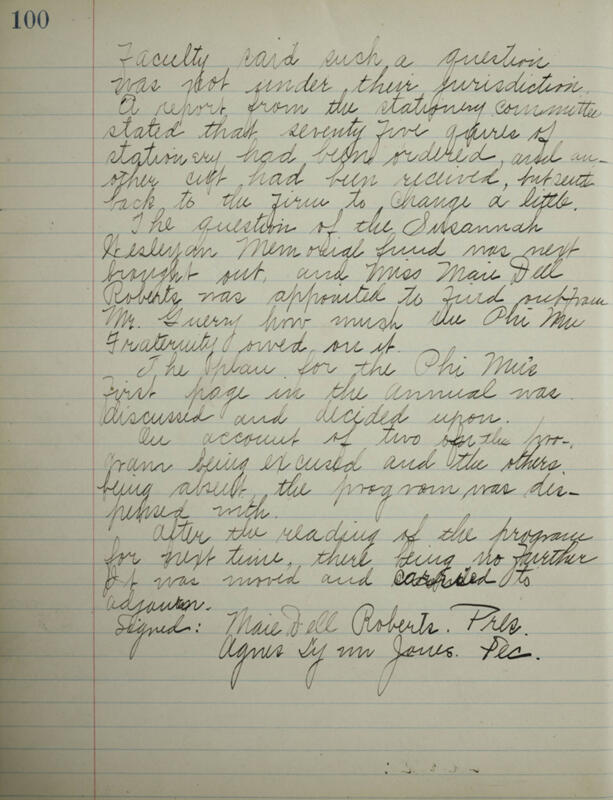 100
Faculty said such a question
was not under their jurisdiction.
A report from the stationery committee
stated that seventy five quires of
stationery had been ordered, and an-
other cut had been received, but sent
back to the firm to change a little.
The question of the Susannah
Wesleyan Memorial fund was next
brought out, and Miss Maie Dell
Roberts was appointed to find out from
Mr. Guerry how much the Phi Mu
Fraternity owed on it.
The plan for the Phi Mu's
first page in the annual was
discussed and decided upon.
On account of two on the pro-
gram being excused and the others
being absent, the program was dis-
pensed with.
After the reading of the program
for next time, there being no further
it was moved and carried to
adjourn.
Signed: Maie Dell Roberts. Pres.
Agnes Lynn Jones. Sec.